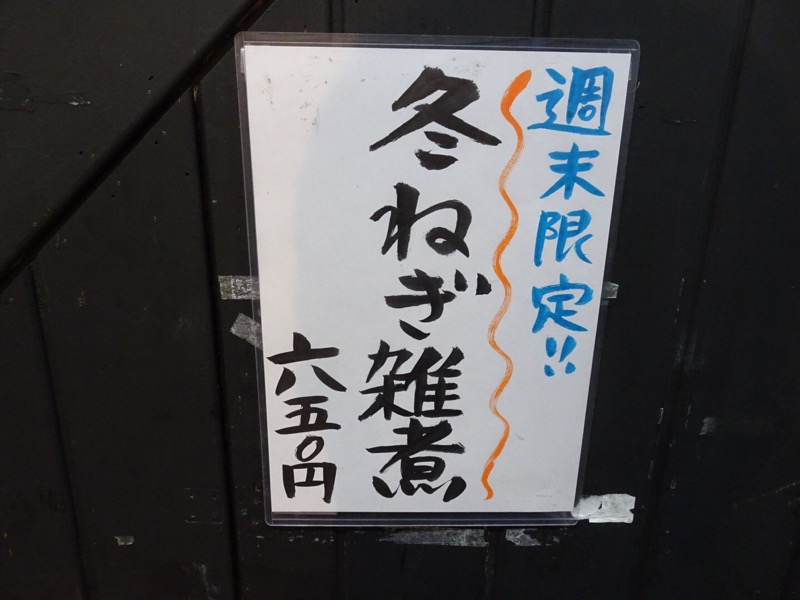 週末限定!!
冬ねぎ雑煮
六五〇円